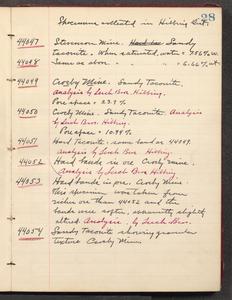 28
Specimens collected in Hibbing Dist.
44047 Stevenson Mine. Sandy
taconite. When saturated, water = 7.86% w.
44048 Same as above " " = 6.66% wt.
44049 Crosby Mine. Sandy Taconite.
Analysis by Lerch Bros. Hibbing.
Pore space = 23.9 %
44050 Crosby Mine. Sandy Taconite. Analysis
by Lerch Bros. Hibbing.
Pore space = 10.94 %
44051 Hard Taconite. same band as 44049.
Analysis by Lerch Bros. Hibbing.
44052 Hard bands in ore Crosby mine.
Analysis by Lerch Bros. Hibbing
44053 Hard bands in ore. Crosby Mine.
This specimen was taken from
richer ore than 44052 and the
bands were softer, apparently slightly
altered. Analysis by Lerch Bros.
44054 Sandy Taconite showing granular
texture Crosby Mine